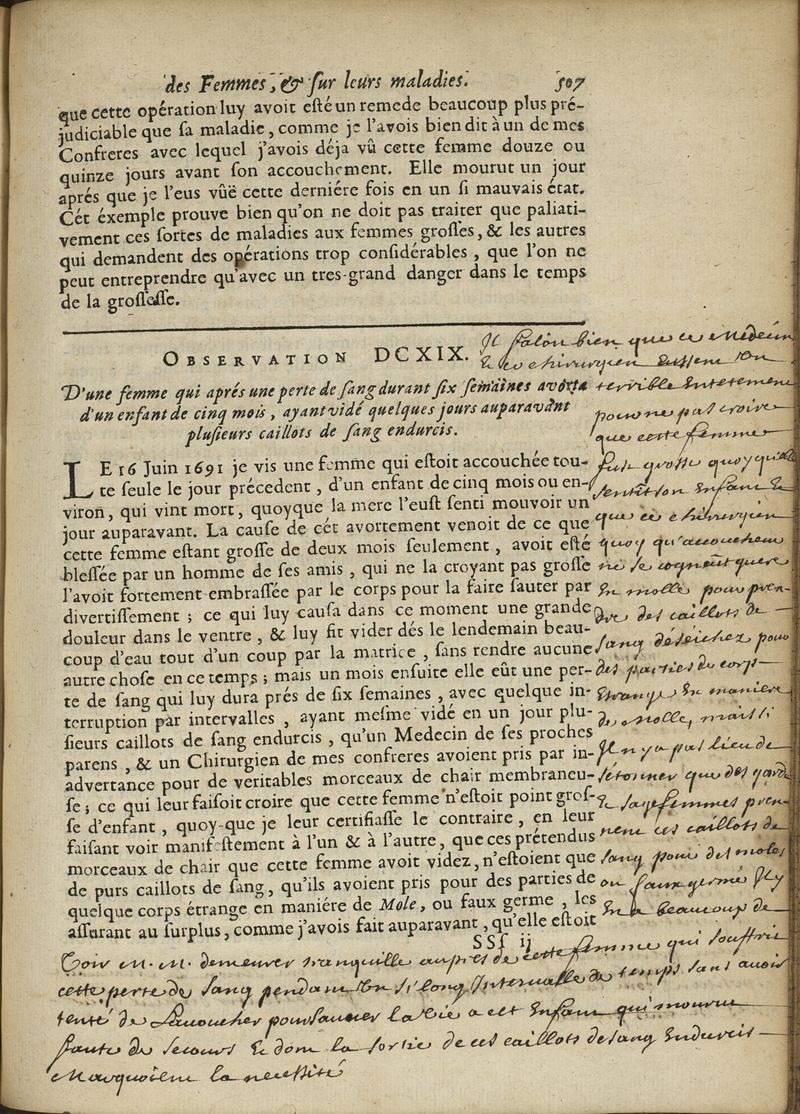 des Femmes, & sur leurs maladies. 507
que cette opération luy avoit esté un remede beaucoup plus pré-
judiciable que sa maladie, comme je l'avois bien dit à un de mes
Confreres avec lequel j'avois déja vû cette femme douze ou
quinze jours avant son accouchement. Elle mourut un jour
aprés que je l'eus vûë cette derniére fois en un si mauvais état.
Cét éxemple prouve bien qu'on ne doit pas traiter que paliati-
vement ces sortes de maladies aux femmes grosses, & les autres
qui demandent des opérations trop considérables, que l'on ne
peut entreprendre qu'avec un tres-grand danger dans le temps
de la grossesse.
OBSERVATION DCXIX.
D'une femme qui aprés une perte de sang durant six semaines avorta
d'un enfant de cinq mois, ayant vidé quelques jours auparavant
plusieurs caillots de sang endurcis.
LE 16 Juin 1691 je vis une femme qui estoit accouchée tou-
te seule le jour précedent, d'un enfant de cinq mois ou en-
viron, qui vint mort, quoyque la mere l'eust senti mouvoir un
jour auparavant. La cause de cét avortement venoit de ce que
cette femme estant grosse de deux mois seulement, avoit esté
blessée par un homme de ses amis, qui ne la croyant pas grosse
l'avoit fortement embrassée par le corps pour la faire sauter par
divertissement; ce qui luy causa dans ce moment une grande
douleur dans le ventre, & luy fit vider dés le lendemain beau-
coup d'eau tout d'un coup par la matrice, sans rendre aucune
autre chose en ce temps; mais un mois ensuite elle eût une per-
te de sang qui luy dura prés de six semaines, avec quelque in-
terruption par intervalles, ayant mesme vidé en un jour plu-
sieurs caillots de sang endurcis, qu'un Medecin de ses proches
parens, & un Chirurgien de mes confreres avoient pris par in-
advertance pour de veritables morceaux de chair membraneu-
se; ce qui leur faisoit croire que cette femme n'estoit point gros-
se d'enfant, quoy-que je leur certifiasse le contraire, en leur
faisant voir manifestement à l'un & à l'autre, que ces prétendus
morceaux de chair que cette femme avoit videz, n'estoient que
de purs caillots de sang, qu'ils avoient pris pour des parties de
quelque corps étrange en maniére de Mole, ou faux germe, les
assurant au surplus, comme j'avois fait auparavant, qu'elle estoit
SSf ij
Il faloit bien que ce Medecin
& ce chirurgien eussent un
terrible entetement
pour ne pas croire
que cette femme
fust grosse quoyquelle
sentit son enfant &
que ce chirurgien
quoy qu'accoucheur
ne se cognent guere
en molle pour pren
dre des caillots de
sang deseichez pour
des parties de corps
etrange en maniere
de molle, mais si
Il n'y a pas lieu de
setonner que des gard
& sagefemmes pren
nent ces caillots de
sang pour des moles
ou faux germe Il y
en a beaucoup de
cette femme qui souffrit
cette perte de sang pendant un si long Intervalle de temps sans avoir
tenté de Lacoucher pour sauver la vie a cet enfant qui mourut
faute de secours & dont la sortie de ces caillots de sang endurcis
Marquoient la necessité